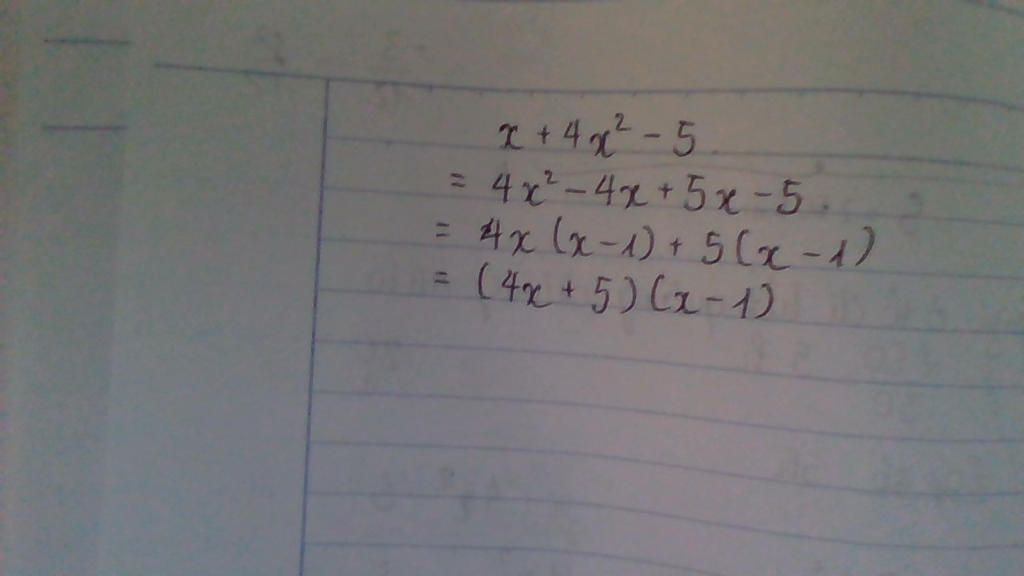 x + 4x² - 5
= 4x² - 4x + 5x - 5.
= 4x (x - 1) + 5(x - 1)
= (4x + 5)(x - 1)